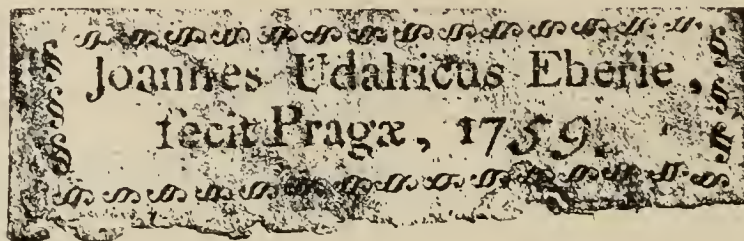 Joannes Udalricus Eberle,
fecit Pragæ, 1759.